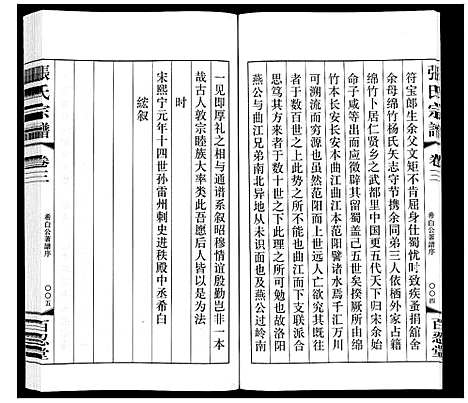 張氏宗譜
卷三
希白公著譜序
〇〇四
百忍堂
符宝郎生余父文矩不肯屈身侍伪疾蚤捐舘舍
余母绵竹杨氏矢志守节携余同弟三人依栖外家占籍
绵竹卜居仁贤乡之武都里中国更五代天下归宋余始
命子咸等出而应徵辟其留蜀盖已五世矣揆厥所自绵
竹本长安长安本曲江曲江本范阳譬诸水焉千汇万川
可溯流而穷源也虽然范阳而上世远人亡欲究其以
者于数百世之上此势之所不能也曲江而下支联派合
思笃其方来者于数十世之下此理之所可勉也故洛阳
燕公与曲江兄弟南北异地从未识面也及燕公过岭南
一见即厚礼之相与通谱系叙昭穆情谊殷勤岂非一本
哉古人敦宗睦族大率类此吾愿后人皆以是为法
时
宋熙宁元年十四世孙雷州刺史进秩殿中丞希白
綋叙
張氏宗譜
卷三
希白公著譜序
〇〇五
百忍堂